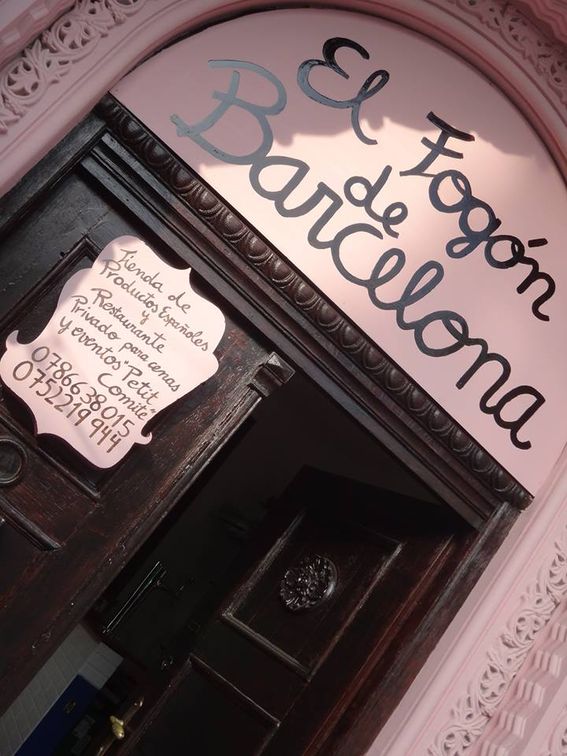 El Fogón
de
Barcelona
Tienda de
Productos Españoles
y
Restaurante
Privado para cenas
y eventos "Petit
Comité"
0786638015
0752219944